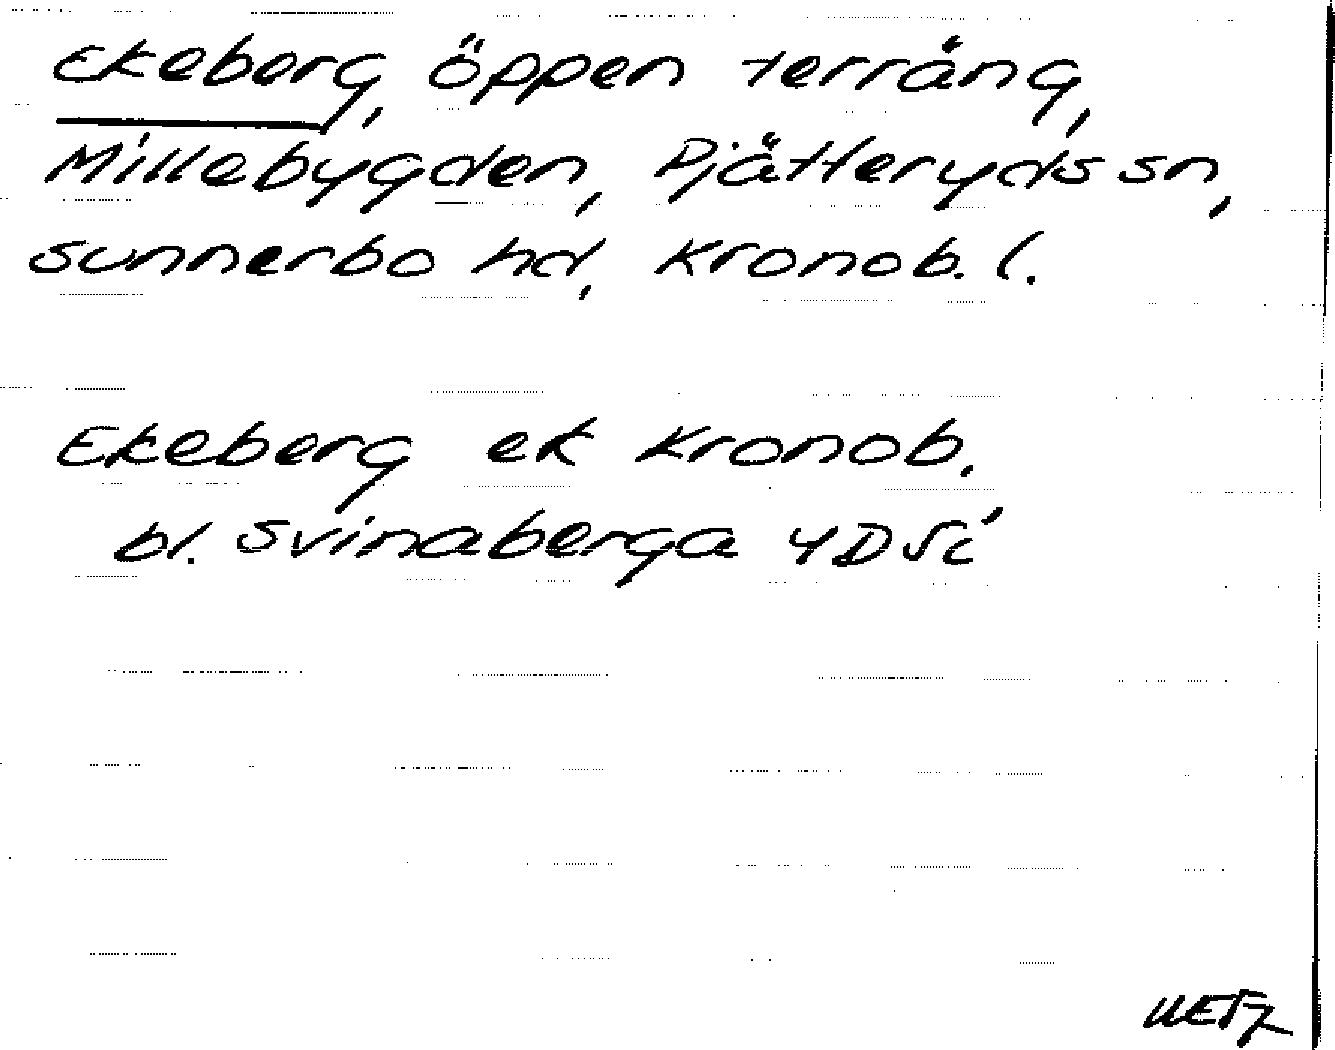 Ekeberg, öppen terräng,
Millebygden, Pjätteryds sn,
Sunnerbo hd, Kronob. l.
Ekeberg ek Kronob.
bl. Svinaberga 4D 5c